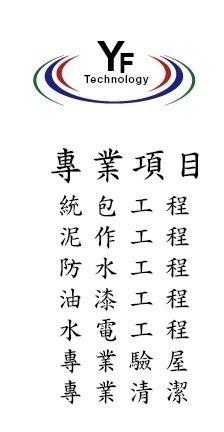 YF
Technology
專業項目
統包工程
泥作工程
防水工程
油漆工程
水電工程
專業驗屋
專業清潔